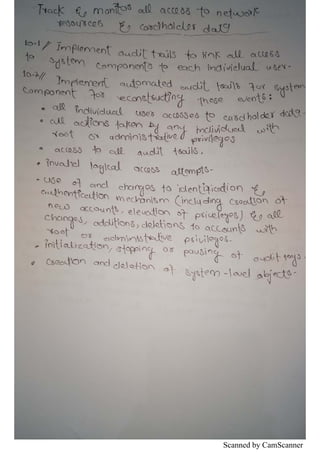 Track & monitor all access to network
resources & cardholder data
10.1// Implement audit trails to link all access
to system components to each individual user.
10.2// Implement automated audit trails for system
component for reconstructing these events:
• all individual user accesses to cardholder data.
• all actions taken by any individual with
root or administrative privileges
• access to all audit trails.
• invalid logical access attempts.
- use of and changes to identification &
authentication mechanism (including creation of
new accounts, elevation of privileges) & all
changes, additions, deletions to accounts with
root or administrative privileges.
• initialization, stopping or pausing of audit logs.
• creation and deletion of system-level objects.
Scanned by CamScanner